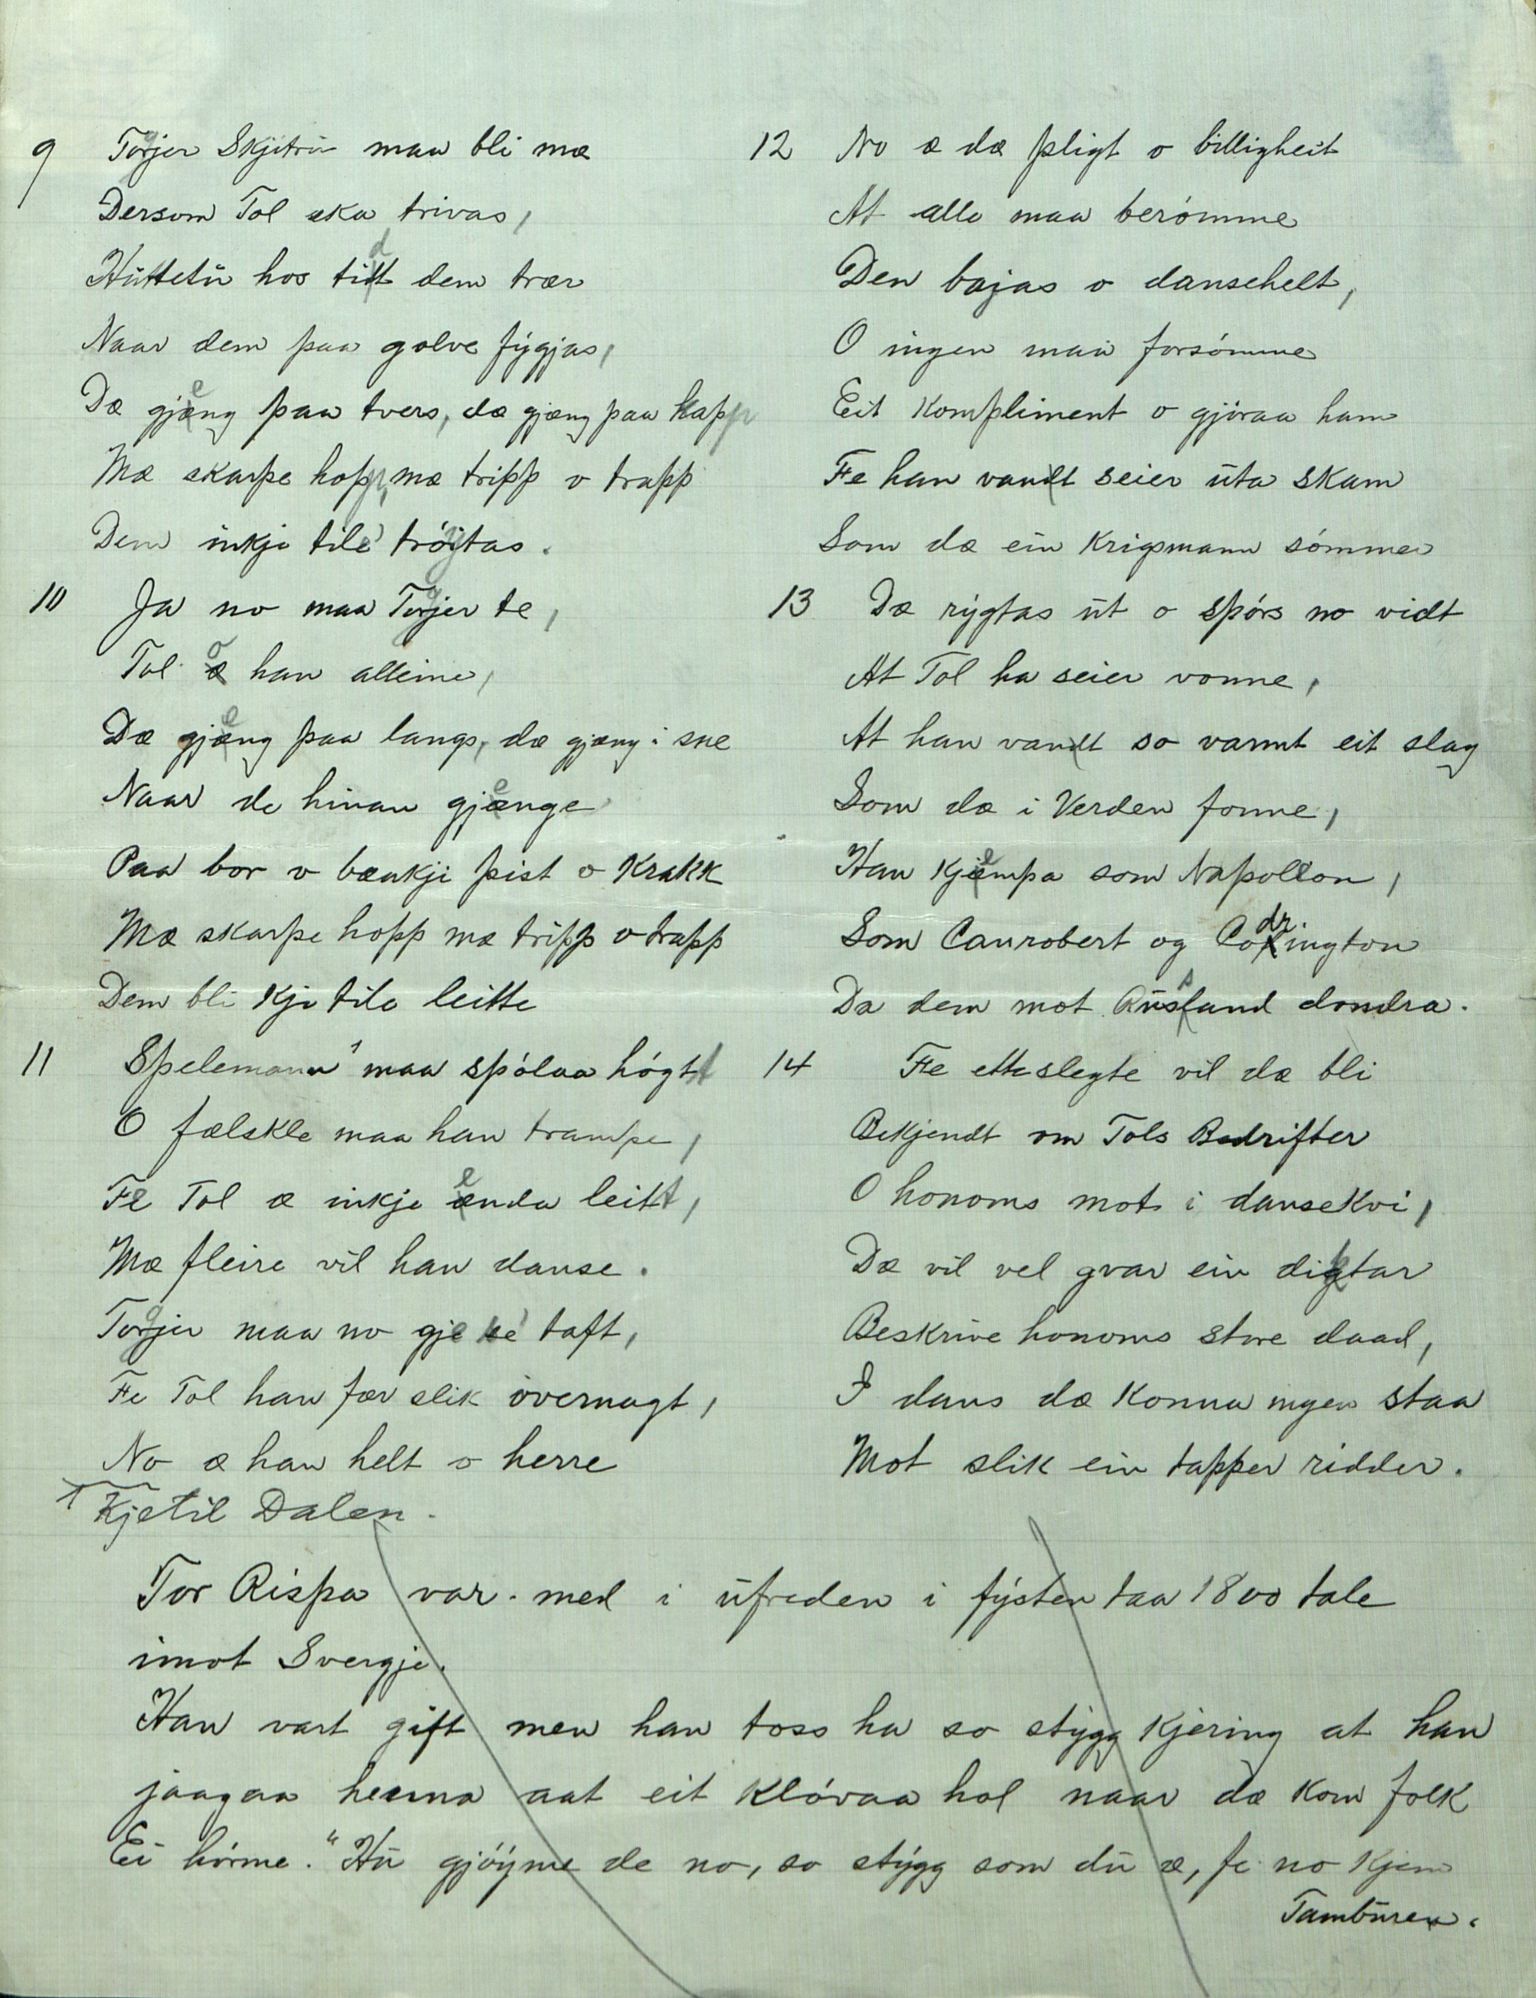 9 Torjer Skjitrú maa bli mæ
Dersom Tol ska trivas,
Húttetú hos tidt dem trær
Naar dem paa golve fýgjas,
Dæ gjeng paa tvers, dæ gjæng paa kapp
Mæ skarpe hopp, mæ tripp o trapp
Dem inkji tile tróytas.
10 Ja no maa Torjer te,
Tol o han alleine,
Dæ gjeng paa langs, dæ gjæng i sne
Naar de hinan gjenge
Paa bor o bænkji pist o krakk
Mæ skarpe hopp mæ tripp o trapp
Dem bli kji tile leitte
11 Spelemann¹ maa spólaa hógtt
O fælskle maa han trampe,
Fe Tol æ inkje enda leitt,
Mæ fleire vil han danse.
Torjer maa no gje se' taft,
Fe Tol han fær slik overmagt,
No æ han helt o herre
1 Kjetil Dalen.
12 No æ dæ pligt o billigheit
At alle maa berómme
Den bajas o dansehelt,
O ingen maa forsómme
Eit kompliment o gjóraa ham
Fe han vandt seier úta skam
Som dæ ein krigsmann sómmer
13 Dæ rýgtas út o spórs no vidt
At Tol ha seier vonne,
At han vandt so varmt eit slag
Som dæ i Verden fonne,
Han kjempa som Napoleon,
Som Canrobert og Codrington
Da dem mot Rúsland dondra.
14 Fe etteslegte vil dæ bli
Bekjendt om Tols Bedrifter
O honoms mot i dansekvi,
Dæ vil vel gvar ein diktar
Beskrive honoms store daad,
I dans dæ konna ingen staa
Mot slik ein tapper ridder.
Tor Rispa var med i úfreden i fýsten taa 1800 tale
imot Svergje.
Han vart gift men han toss ha so stýgg kjering at han
jaagaa henna aat eit klóvaa hol naar dæ kom folk
Ei hórme. "Hú gjóýme de no, so stýgg som dú æ, fe no kjem
Tambúren.